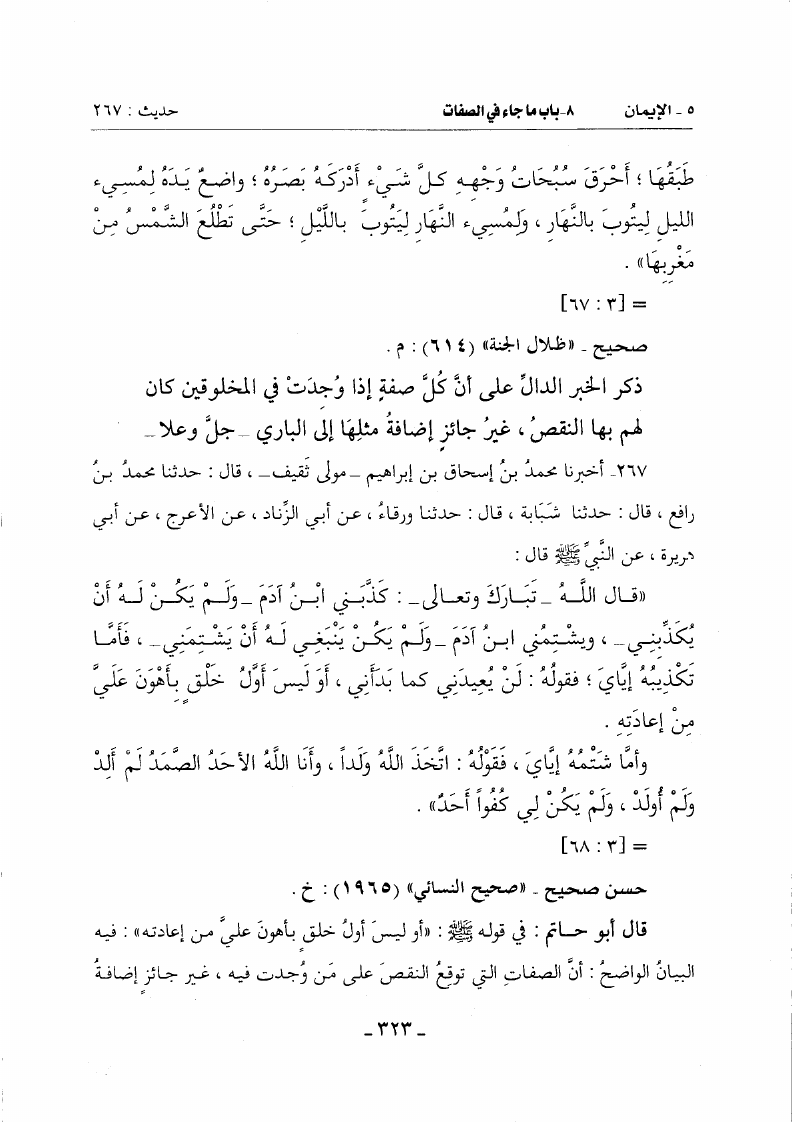 ٥ ـ الإيمان ٨ـ باب ما جاء في الصفات حديث : ٢٦٧
طَبَقُهَا ؛ أَحْرَقَ سُبُحَاتُ وَجْهِهِ كلَّ شَيْءٍ أَدْرَكَهُ بَصَرُهُ ؛ واضعٌ يَدَهُ لِمُسِيء
الليلِ لِيَتُوبَ بالنَّهَارِ ، وَلِمُسِيءِ النَّهارِ لِيَتُوبَ بِاللَّيْلِ ؛ حَتَّى تَطْلُعَ الشَّمْسُ مِنْ
مَغْرِبِهَا» .
= [٣ : ٦٧]
صحيح ـ «ظلال الجنة» (٦١٤) : م .
ذكر الخبر الدالِّ على أنَّ كُلَّ صفةٍ إذا وُجِدَتْ في المخلوقين كان
لهم بها النقصُ ، غيرُ جائزٍ إضافةُ مثلِهَا إلى الباري ـ جلَّ وعلا ـ
٢٦٧ـ أخبرنا محمدُ بنُ إسحاق بن إبراهيم ـ مولى ثَقيف ـ ، قال : حدثنا محمدُ بنُ
رافع ، قال : حدثنا شَبَابة ، قال : حدثنا ورقاءُ ، عن أبي الزِّناد ، عن الأعرج ، عن أبي
هريرة ، عن النَّبيِّ ﷺ قال :
«قال اللَّهُ ـ تَبَارَكَ وتعالى ـ : كَذَّبَنِي ابنُ آدَمَ ـ وَلَمْ يَكُنْ لَهُ أَنْ
يُكَذِّبَنِي ـ ، ويشتِمُني ابنُ آدَمَ ـ ولَمْ يَكُنْ يَنْبَغِي لَهُ أَنْ يَشْتِمَنِي ـ ، فَأَمَّا
تَكْذِيبُهُ إيَّايَ ؛ فقولُهُ : لَنْ يُعِيدَنِي كما بَدَأَنِي ، أَوَ لَيسَ أَوَّلُ خَلْقٍ بِأَهْوَنَ عَلَيَّ
مِنْ إِعَادَتِهِ .
وأمَّا شَتْمُهُ إيَّايَ ، فَقَوْلُهُ : اتَّخَذَ اللَّهُ وَلَداً ، وأَنَا اللَّهُ الأَحَدُ الصَّمَدُ لَمْ أَلِدْ
وَلَمْ أُولَدْ ، وَلَمْ يَكُنْ لِي كُفُواً أَحَدٌ» .
= [٣ : ٦٨]
حسن صحيح ـ «صحيح النسائي» (١٩٦٥) : خ .
قال أبو حاتم : في قوله ﷺ : «أو ليسَ أولُ خلقٍ بأهونَ عليَّ من إعادته» : فيه
البيانُ الواضحُ : أنَّ الصفاتِ التي توقِعُ النقصَ على مَن وُجدت فيه ، غير جائزٍ إضافةُ
ـ ٣٢٣ ـ